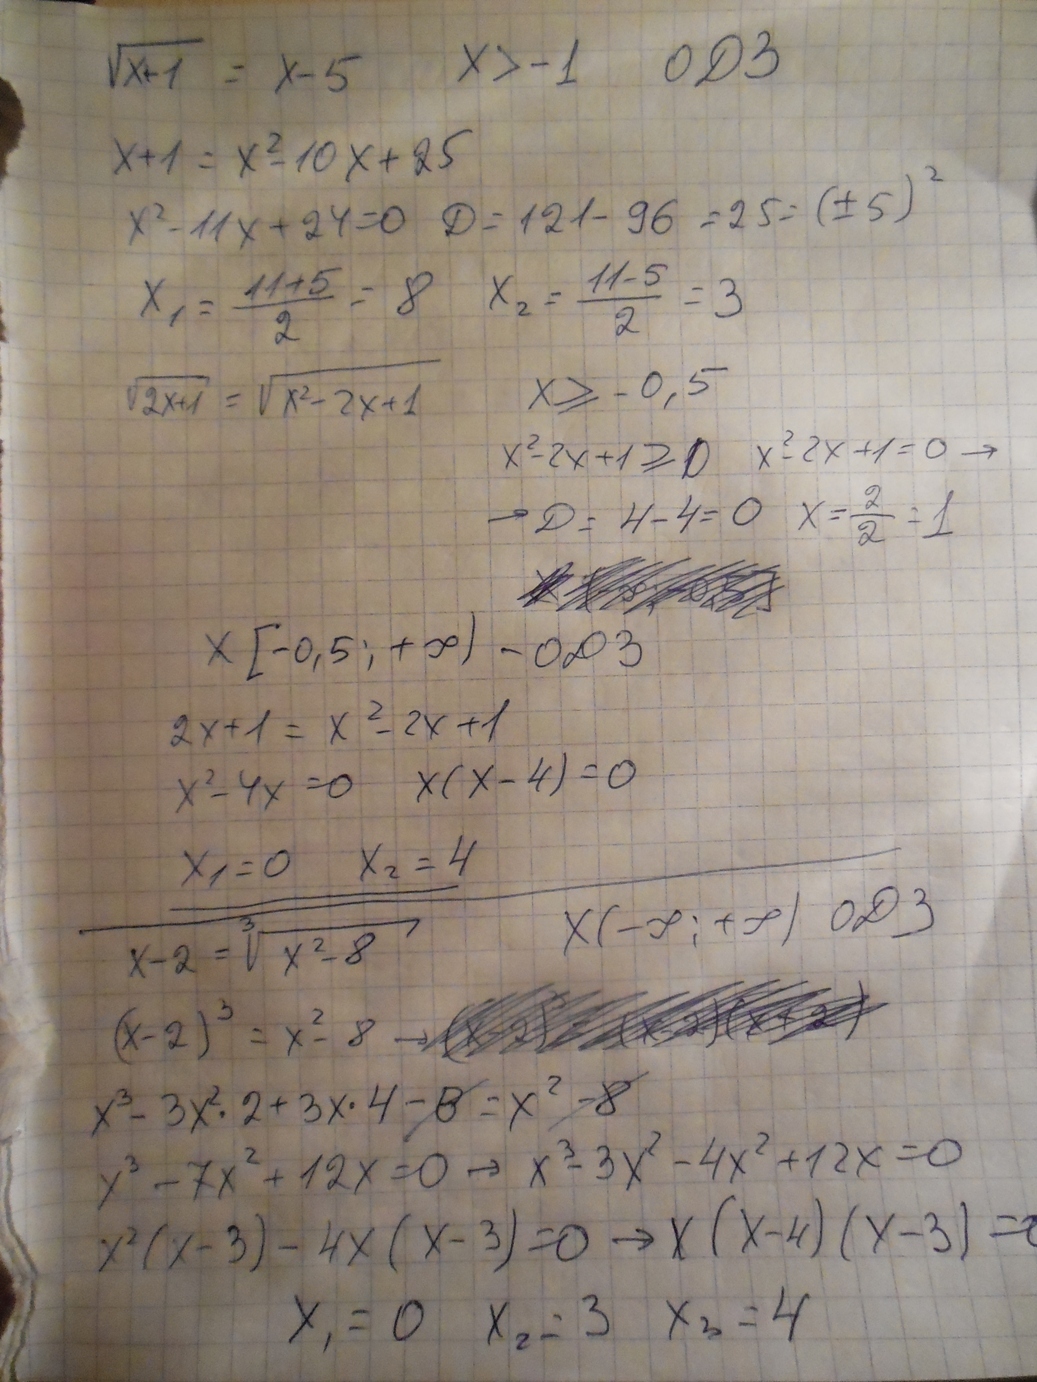 √(x+1) = x-5 x>-1 ОДЗ
x+1 = x²-10x+25
x²-11x+24=0 D=121-96=25=(±5)²
x₁ = (11+5)/2 = 8 x₂ = (11-5)/2 = 3
√(2x+1) = √(x²-2x+1) x⩾-0,5
x²-2x+1⩾0 x²-2x+1=0 →
→ D=4-4=0 x=2/2=1
x[-0,5;+∞) -ОДЗ
2x+1 = x²-2x+1
x²-4x=0 x(x-4)=0
x₁=0 x₂=4
x(-∞;+∞) ОДЗ
x-2 = ∛(x²-8)
(x-2)³ = x²-8 →
x³-3x²·2+3x·4-8=x²-8
x³-7x²+12x=0 → x³-3x²-4x²+12x=0
x²(x-3)-4x(x-3)=0 → x(x-4)(x-3)=0
x₁=0 x₂=3 x₃=4